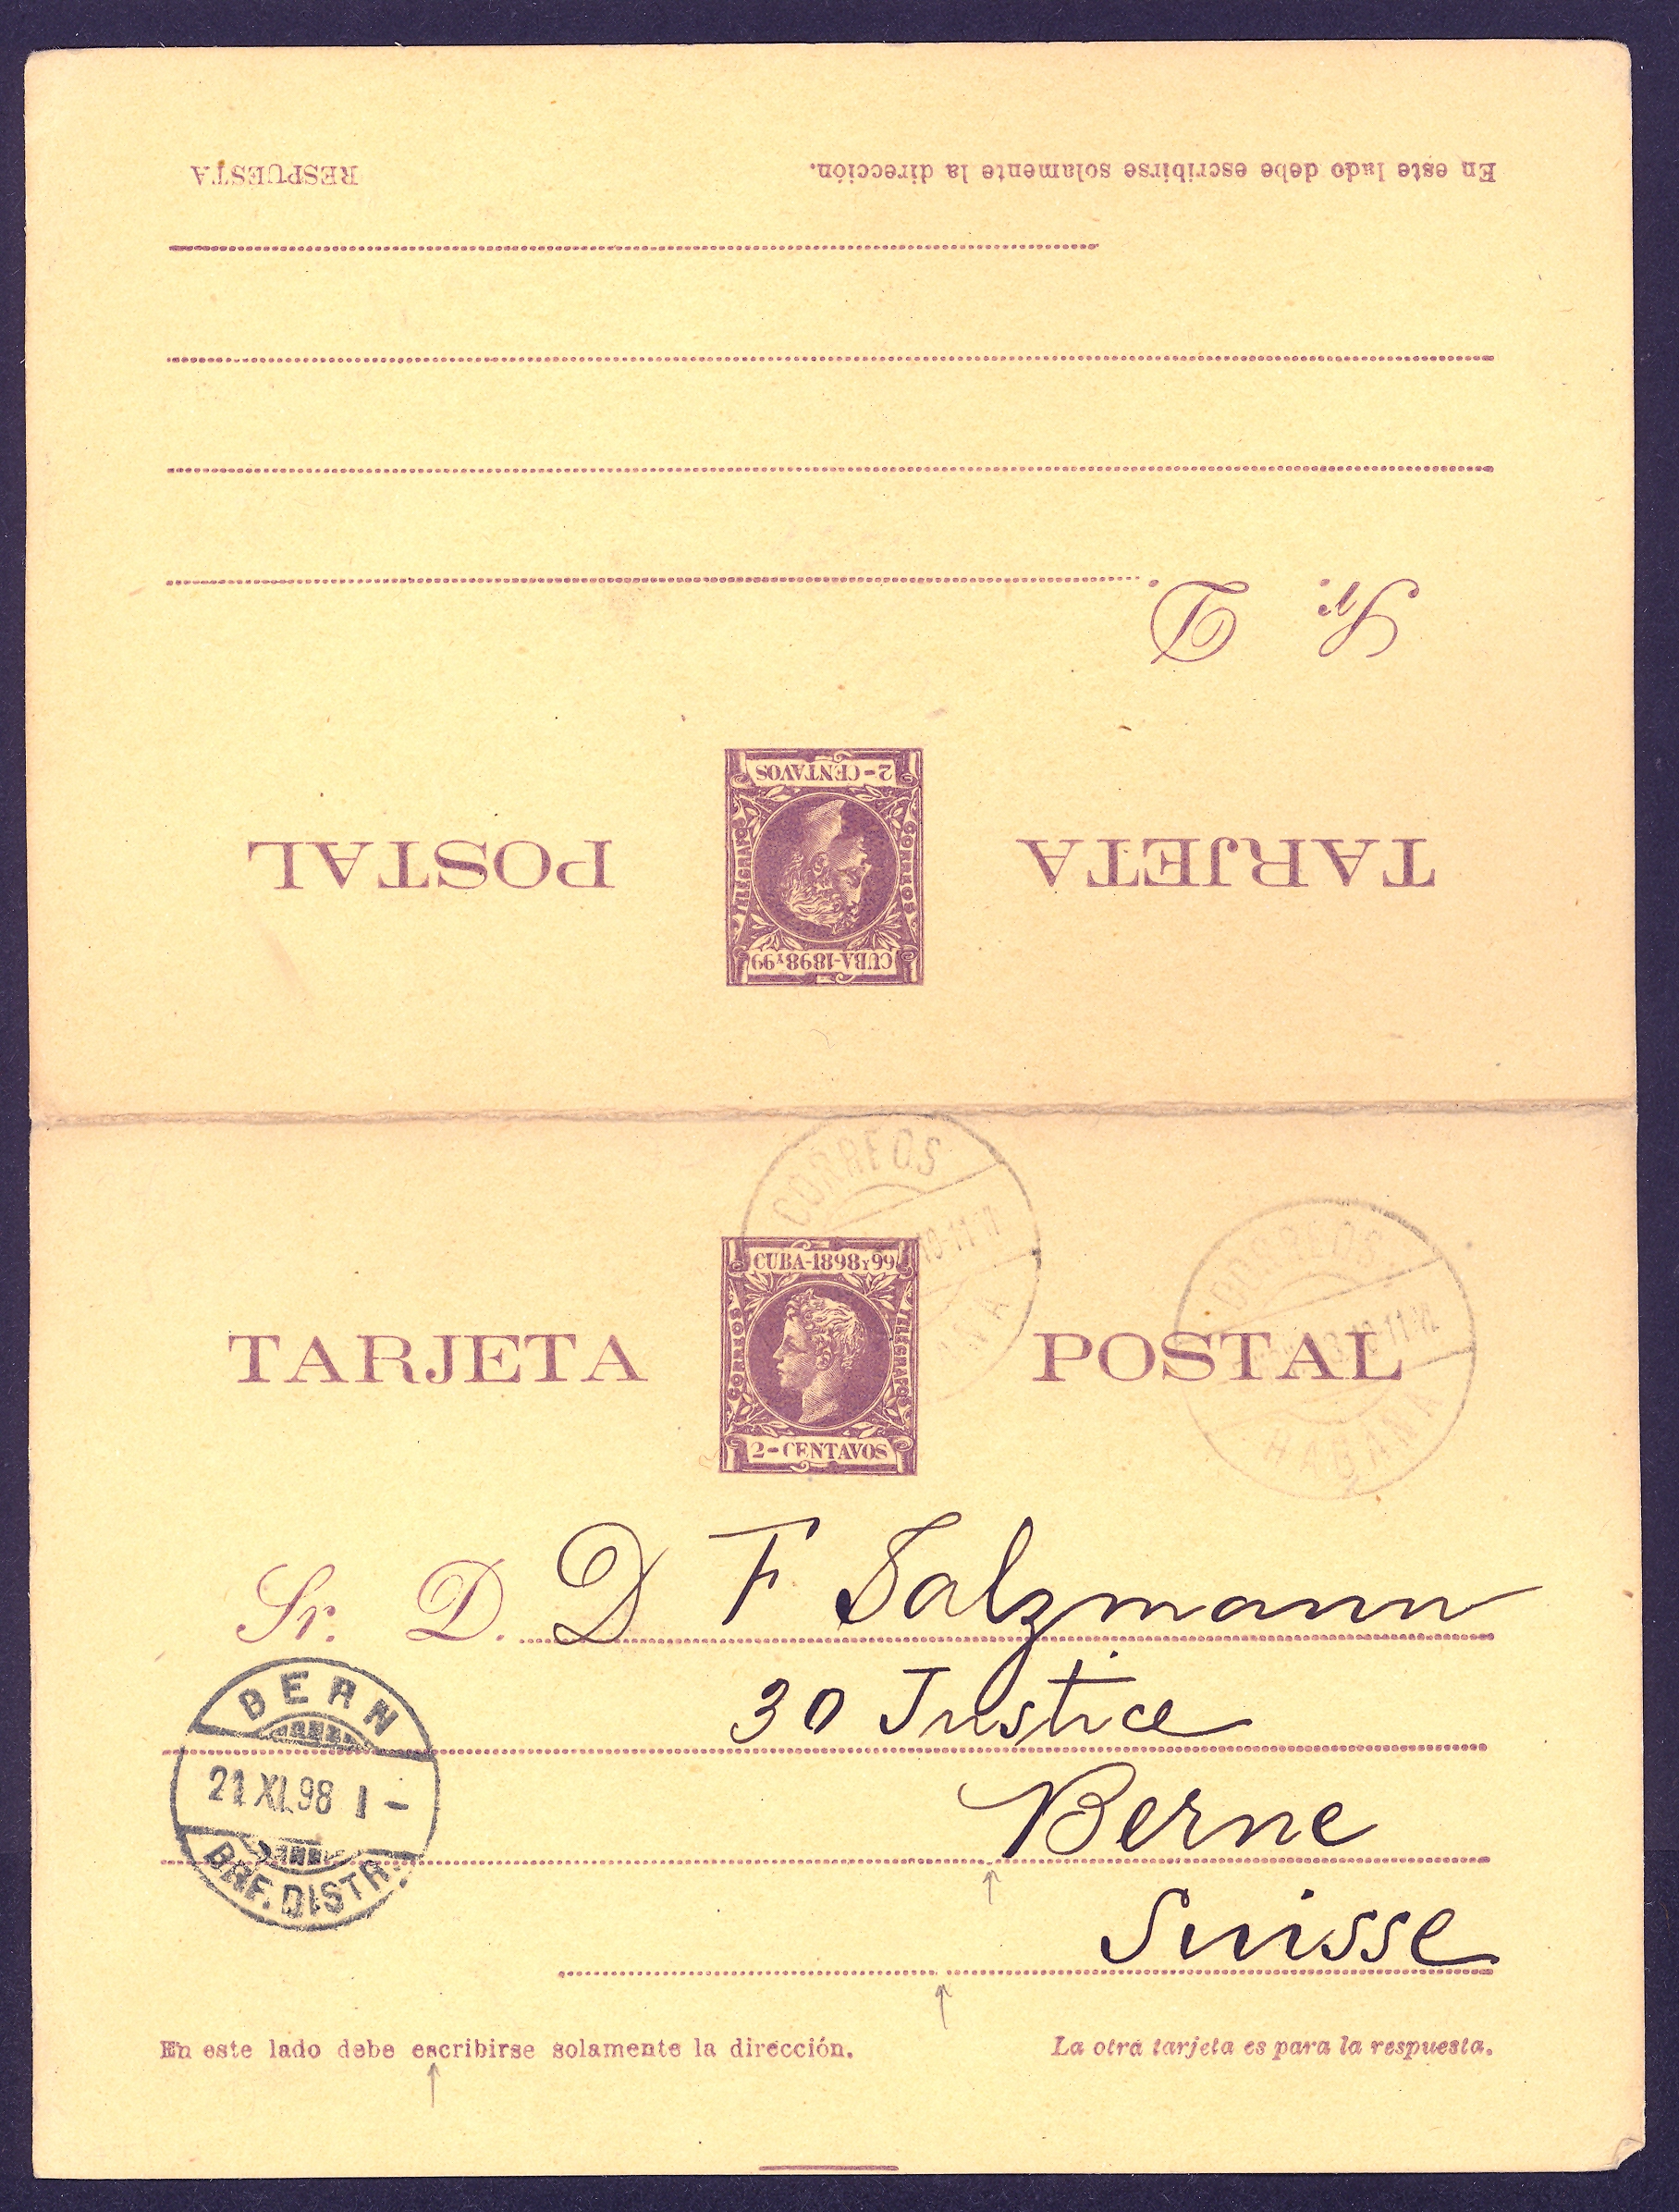 RESPUESTA
En este lado debe escribirse solamente la dirección.
Sr. D.
2-CENTAVOS
CORREOS
TELEGRAFOS
CUBA-1898 Y 99
TARJETA POSTAL
CORREOS
10-11
CORREOS
10-11
HABANA
CUBA-1898 Y 99
CORREOS
TELEGRAFOS
2-CENTAVOS
TARJETA POSTAL
Sr. D. D F Salzmann
30 Justice
Berne
Suisse
BERN
21.XI.98 I-
BRF. DISTR.
En este lado debe escribirse solamente la dirección.
La otra tarjeta es para la respuesta.